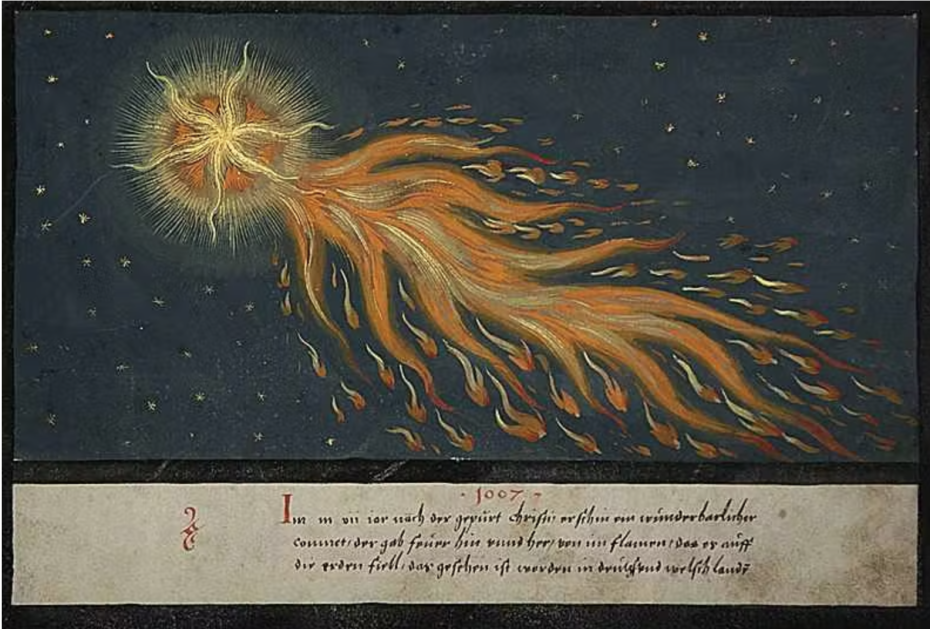 · 1007 ·
Im m vii iar nach der gepurt Christi erschin ein wunderbarlicher
commet, der gab feuer hin vnnd her, von im flamen, das er auff
die erden fiell, das gesehen ist worden in deutsch vnd welsch landt